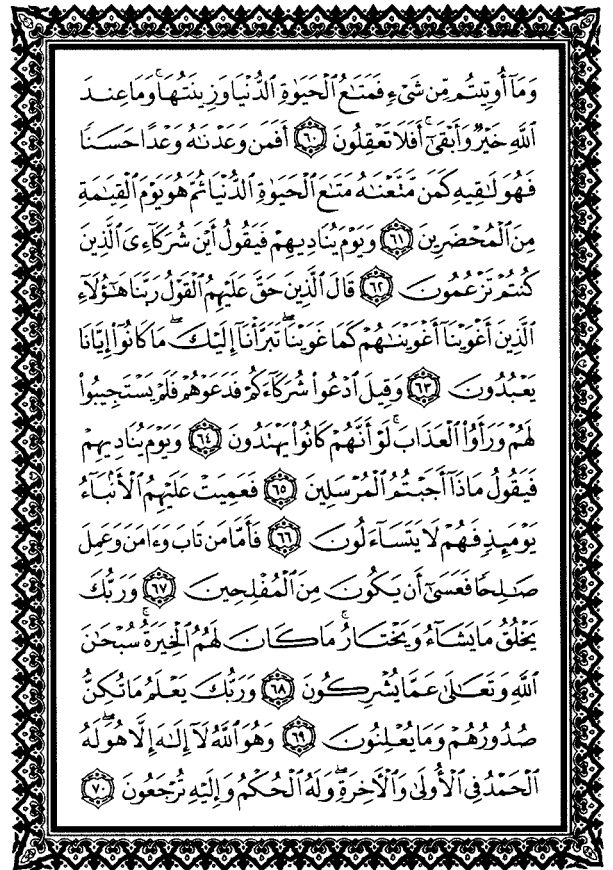 وَمَآ أُوتِيتُم مِّن شَىْءٍ فَمَتَٰعُ ٱلْحَيَوٰةِ ٱلدُّنْيَا وَزِينَتُهَا ۚ وَمَا عِندَ
ٱللَّهِ خَيْرٌ وَأَبْقَىٰٓ ۚ أَفَلَا تَعْقِلُونَ ٦٠ أَفَمَن وَعَدْنَٰهُ وَعْدًا حَسَنًا
فَهُوَ لَٰقِيهِ كَمَن مَّتَّعْنَٰهُ مَتَٰعَ ٱلْحَيَوٰةِ ٱلدُّنْيَا ثُمَّ هُوَ يَوْمَ ٱلْقِيَٰمَةِ
مِنَ ٱلْمُحْضَرِينَ ٦١ وَيَوْمَ يُنَادِيهِمْ فَيَقُولُ أَيْنَ شُرَكَآءِىَ ٱلَّذِينَ
كُنتُمْ تَزْعُمُونَ ٦٢ قَالَ ٱلَّذِينَ حَقَّ عَلَيْهِمُ ٱلْقَوْلُ رَبَّنَا هَٰٓؤُلَآءِ
ٱلَّذِينَ أَغْوَيْنَآ أَغْوَيْنَٰهُمْ كَمَا غَوَيْنَا ۖ تَبَرَّأْنَآ إِلَيْكَ ۖ مَا كَانُوٓا۟ إِيَّانَا
يَعْبُدُونَ ٦٣ وَقِيلَ ٱدْعُوا۟ شُرَكَآءَكُمْ فَدَعَوْهُمْ فَلَمْ يَسْتَجِيبُوا۟
لَهُمْ وَرَأَوُا۟ ٱلْعَذَابَ ۚ لَوْ أَنَّهُمْ كَانُوا۟ يَهْتَدُونَ ٦٤ وَيَوْمَ يُنَادِيهِمْ
فَيَقُولُ مَاذَآ أَجَبْتُمُ ٱلْمُرْسَلِينَ ٦٥ فَعَمِيَتْ عَلَيْهِمُ ٱلْأَنۢبَآءُ
يَوْمَئِذٍ فَهُمْ لَا يَتَسَآءَلُونَ ٦٦ فَأَمَّا مَن تَابَ وَءَامَنَ وَعَمِلَ
صَٰلِحًا فَعَسَىٰٓ أَن يَكُونَ مِنَ ٱلْمُفْلِحِينَ ٦٧ وَرَبُّكَ
يَخْلُقُ مَا يَشَآءُ وَيَخْتَارُ ۗ مَا كَانَ لَهُمُ ٱلْخِيَرَةُ ۚ سُبْحَٰنَ
ٱللَّهِ وَتَعَٰلَىٰ عَمَّا يُشْرِكُونَ ٦٨ وَرَبُّكَ يَعْلَمُ مَا تُكِنُّ
صُدُورُهُمْ وَمَا يُعْلِنُونَ ٦٩ وَهُوَ ٱللَّهُ لَآ إِلَٰهَ إِلَّا هُوَ ۖ لَهُ
ٱلْحَمْدُ فِى ٱلْأُولَىٰ وَٱلْءَاخِرَةِ ۖ وَلَهُ ٱلْحُكْمُ وَإِلَيْهِ تُرْجَعُونَ ٧٠